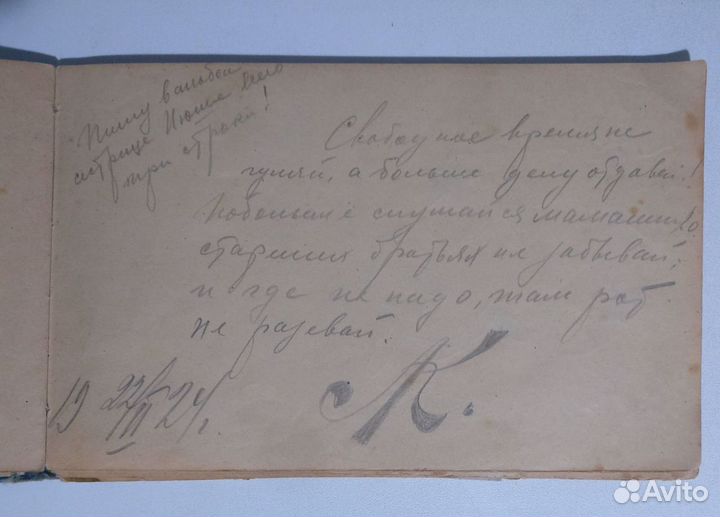 Пишу в альбом
сестрице Нюше всего
три строки!
Свободное время не
гуляй, а больше делу отдавай!
Побольше слушайся мамашу
старших братьях не забывай,
и где не надо, там рот
не разевай.
19 22/III 24.
МК.
Avito